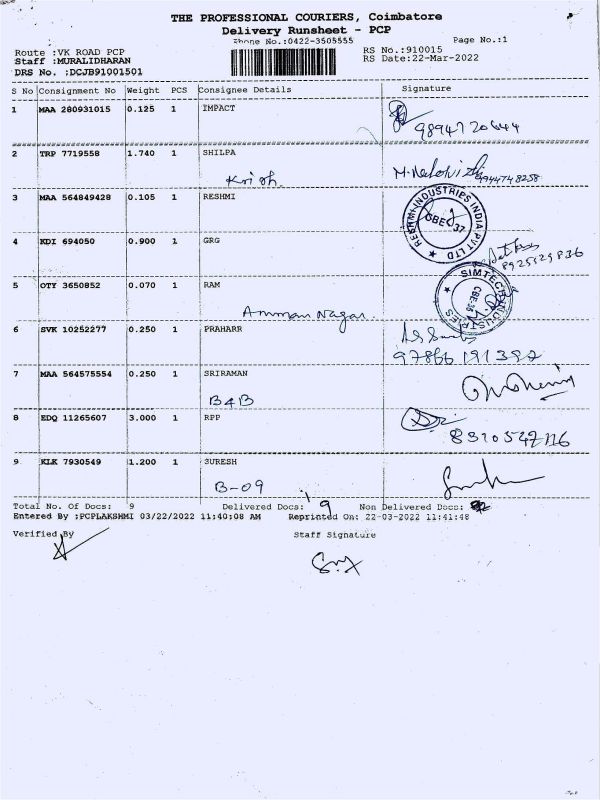 THE PROFESSIONAL COURIERS, Coimbatore
Delivery Runsheet - PCP
Phone No.:0422-3505555 Page No.:1
Route :VK ROAD PCP RS No.:910015
Staff :MURALIDHARAN RS Date:22-Mar-2022
DRS No. :DCJB91001501
S No Consignment No Weight PCS Consignee Details Signature
1 MAA 280931015 0.125 1 IMPACT
2 TRP 7719558 1.740 1 SHILPA
Krish.
3 MAA 564849428 0.105 1 RESHMI
RESHMI INDUSTRIES INDIA PVT LTD
CBE-37
4 KDI 694050 0.900 1 GRG
8925129836
5 OTY 3650852 0.070 1 RAM
SIMTECH INDUSTRIES
CBE-35
Amman Nagar.
6 SVK 10252277 0.250 1 PRAHARR
7 MAA 564575554 0.250 1 SRIRAMAN
B4B
8 EDQ 11265607 3.000 1 RPP
9 KLK 7930549 1.200 1 SURESH
B-09
Total No. Of Docs: 9 Delivered Docs: 9 Non Delivered Docs:
Entered By :PCPLAKSHMI 03/22/2022 11:40:08 AM Reprinted On: 22-03-2022 11:41:48
Verified By Staff Signature